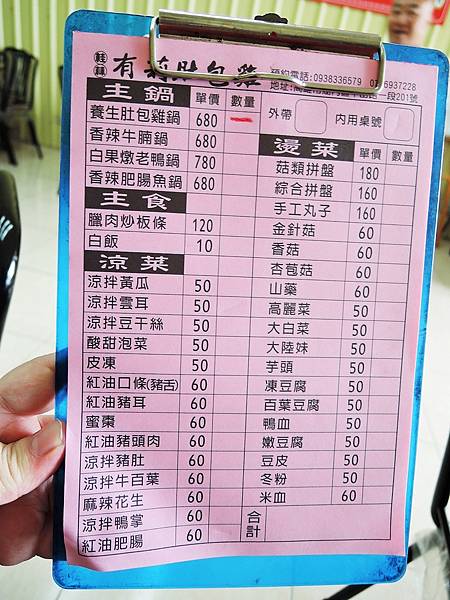 桂林 有莉肚包雞
預約電話:0938336579 07-6937228
一段201號
主鍋 單價 數量
養生肚包雞鍋 680
香辣牛腩鍋 680
白果燉老鴨鍋 780
香辣肥腸魚鍋 680
主食
臘肉炒板條 120
白飯 10
涼菜
涼拌黃瓜 50
涼拌雲耳 50
涼拌豆干絲 50
酸甜泡菜 50
皮凍 50
紅油口條(豬舌) 60
紅油豬耳 60
蜜棗 60
紅油豬頭肉 60
涼拌豬肚 60
涼拌牛百葉 60
麻辣花生 60
涼拌鴨掌 60
紅油肥腸 60
外帶 內用桌號
燙菜 單價 數量
菇類拼盤 180
綜合拼盤 160
手工丸子 160
金針菇 60
香菇 60
杏苞菇 60
山藥 60
高麗菜 50
大白菜 50
大陸妹 50
芋頭 50
凍豆腐 50
百葉豆腐 50
鴨血 50
嫩豆腐 50
豆皮 50
冬粉 50
米血 60
合計